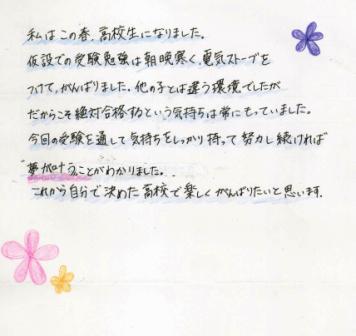 私はこの春、高校生になりました。
仮設での受験勉強は朝晩寒く、電気ストーブを
つけて、がんばりました。他の子とは違う環境でしたが
だからこそ絶対合格するという気持ちは常にもっていました。
今回の受験を通して気持ちをしっかり持って努力し続ければ
夢が叶うことがわかりました。
これから自分で決めた高校で楽しくがんばりたいと思います。